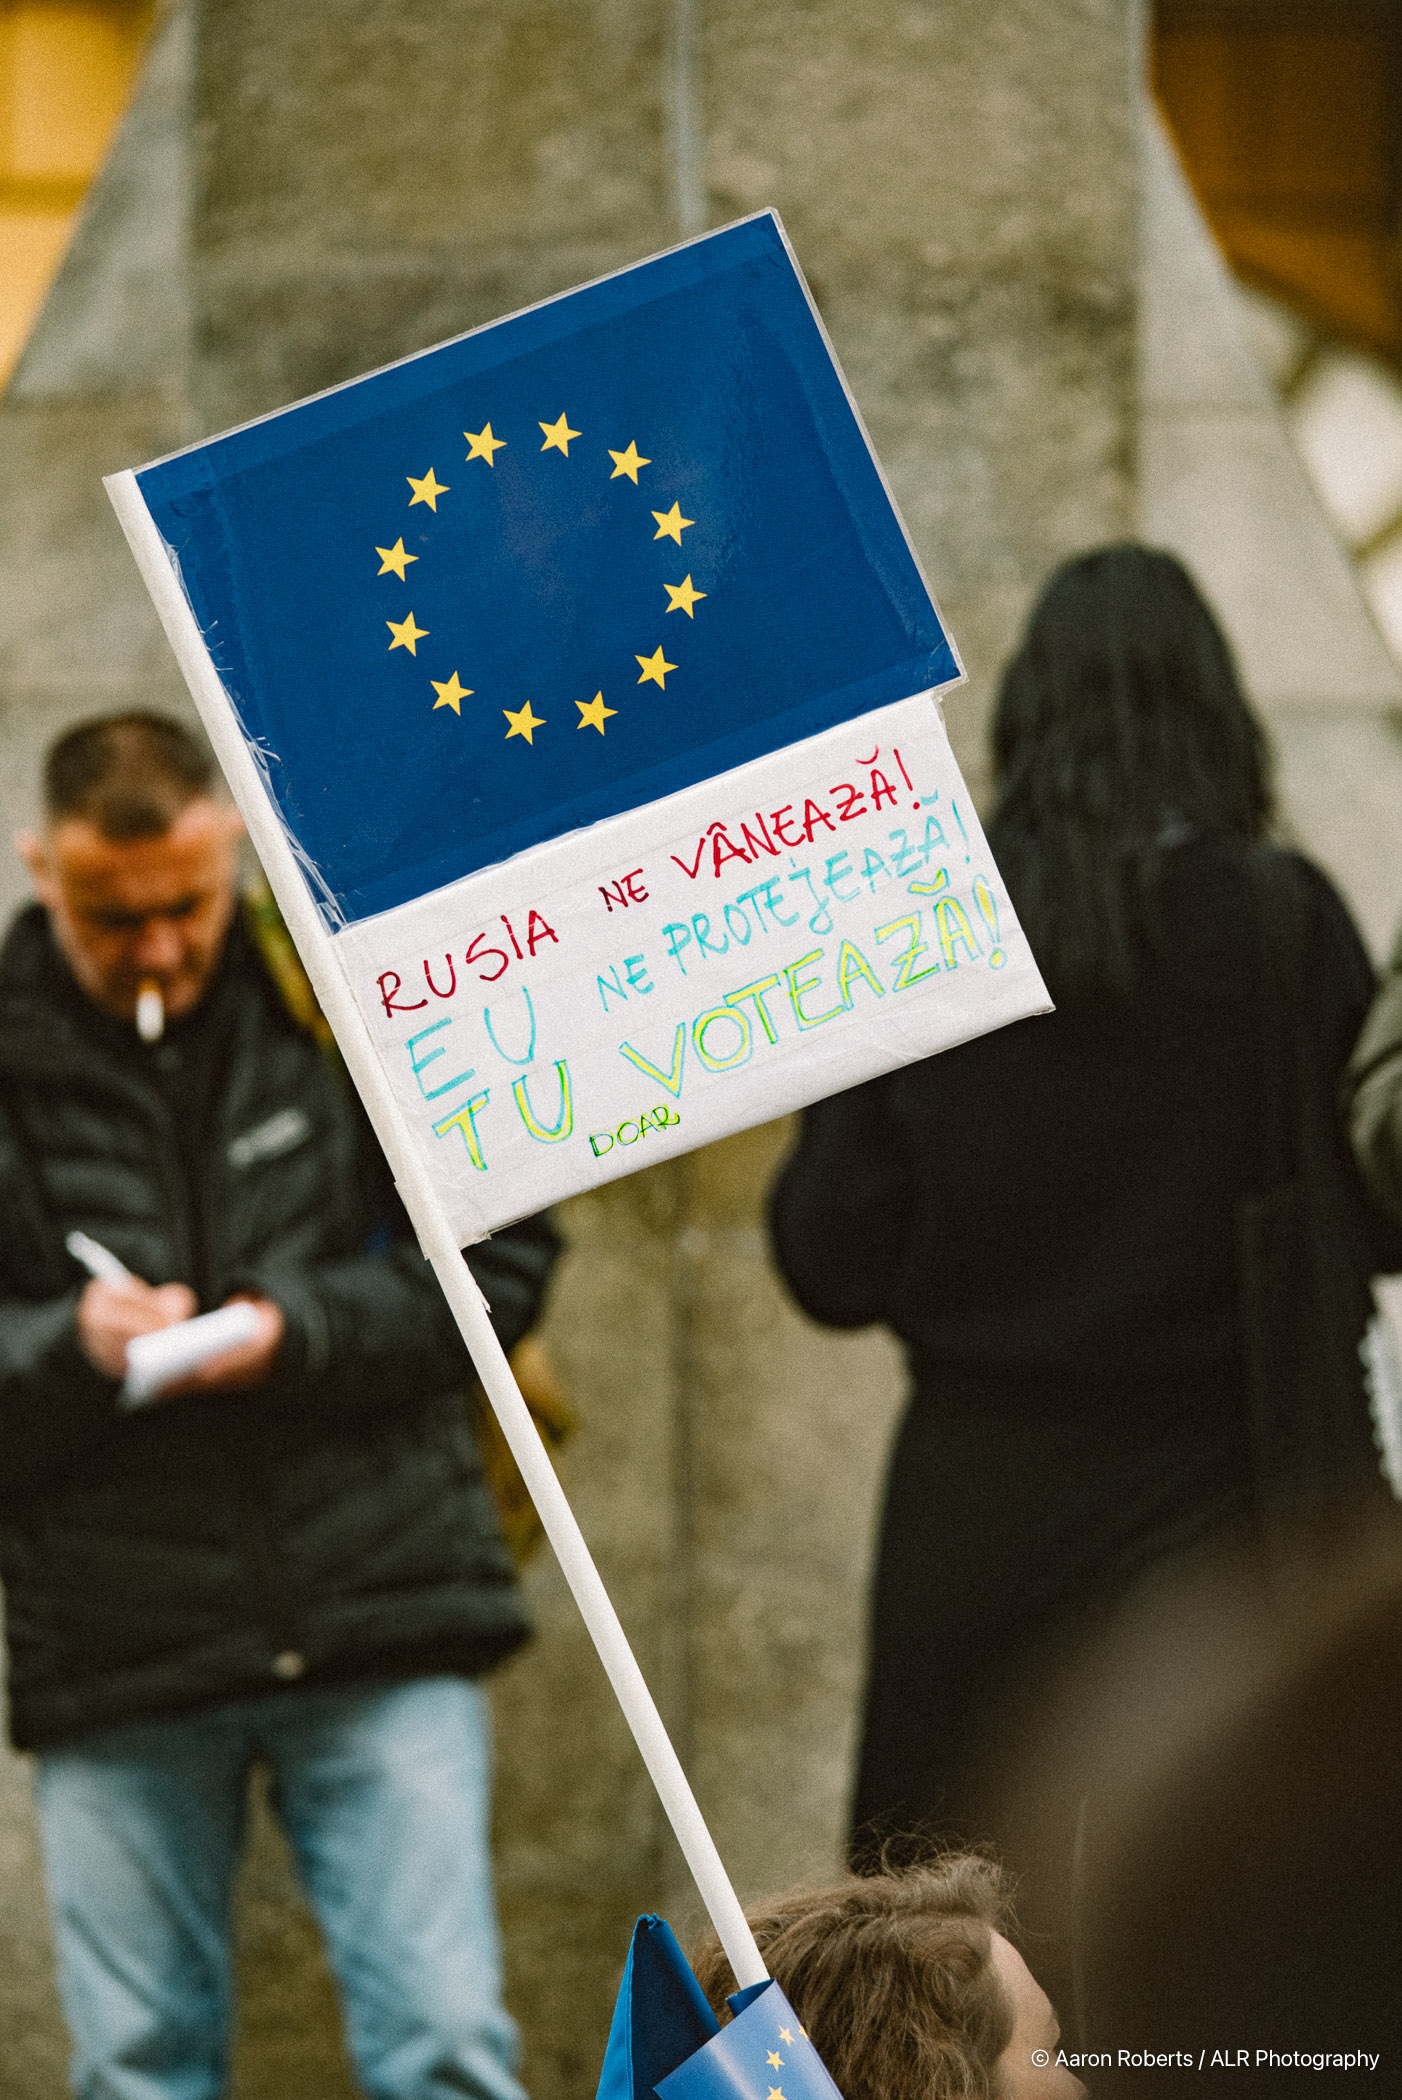 RUSIA NE VÂNEAZĂ!
EU NE PROTEJEAZĂ!
TU VOTEAZĂ!
DOAR
© Aaron Roberts / ALR Photography